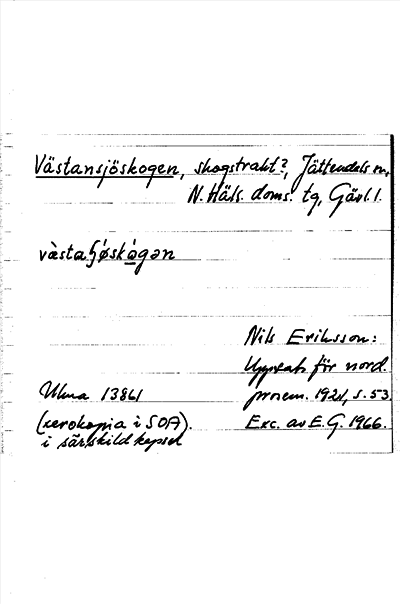 Västansjöskogen, skogstrakt?, Jättendals sn,
N. Häls. doms. tg, Gävl. l.
vàstaɧø̀skògən
Nils Eriksson:
Uppsats för nord.
Ulma 13861 prosem. 1921, s. 53.
(xerokopia i SOFA). Exc. av E.G. 1966.
i särskild kapsel